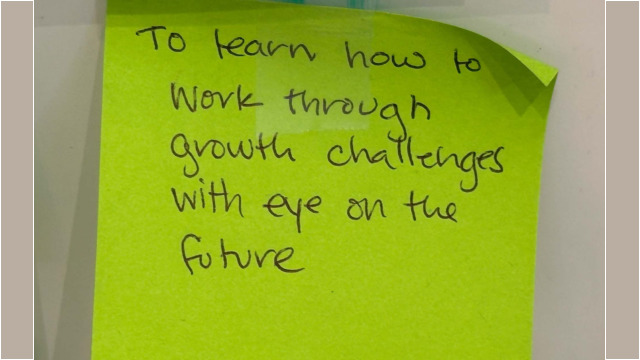 To learn how to
work through
growth challenges
with eye on the
future